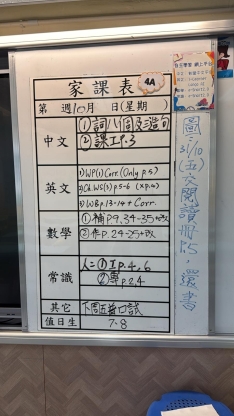 家課表
4A
第 週10月 日(星期 )
中文
①詞八1周及3造句
②課工P.3
英文
①WP(1)Corr.(Only p.5)
②GR.WS(5)p5-6 (xp.a)
③WBp.13-14 + Corr.
數學
①補P.9,34-35+改
②作P.24-25+改
常識
人二:①工P.4,6
②學P.2,4
其它
下周五普口試
值日生
7.8
圖:31/10(五)交閱讀冊P.5,還書